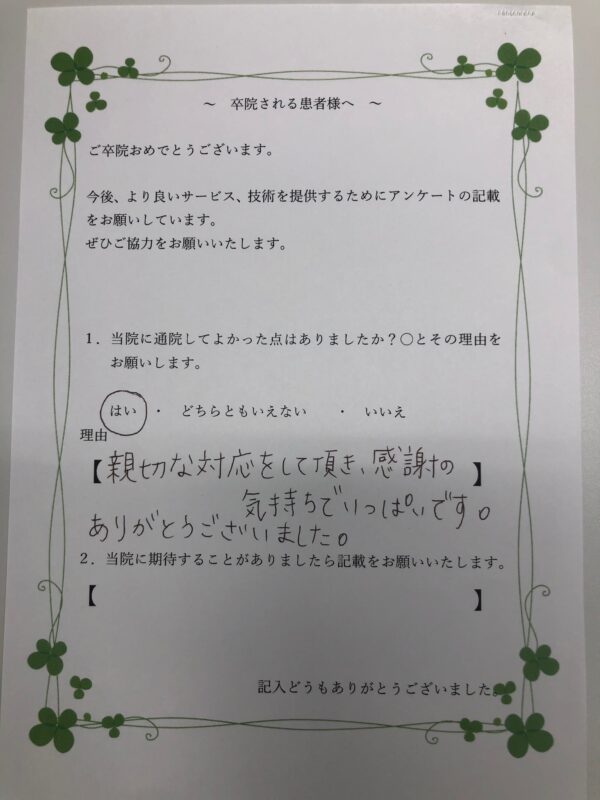 ～　卒院される患者様へ　～
ご卒院おめでとうございます。
今後、より良いサービス、技術を提供するためにアンケートの記載
をお願いしています。
ぜひご協力をお願いいたします。
1．当院に通院してよかった点はありましたか？〇とその理由を
お願いします。
はい　・　どちらともいえない　・　いいえ
理由
【親切な対応をして頂き、感謝の】
気持ちでいっぱいです。
ありがとうございました。
2．当院に期待することがありましたら記載をお願いいたします。
【　】
記入どうもありがとうございました。